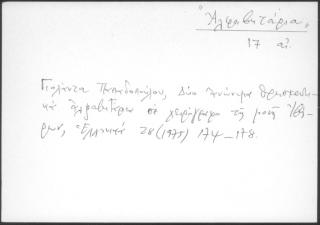 "Ἀλφαβητάρια"
17 αἰ.
Γιολάντα Παπαδοπούλου, Δύο ἀνώνυμα θρησκευτι-
κὰ ἀλφαβητάρια σὲ χειρόγραφο τῆς μονῆς Ἰβή-
ρων, Ἑλληνικά 28 (1975) 174-178.